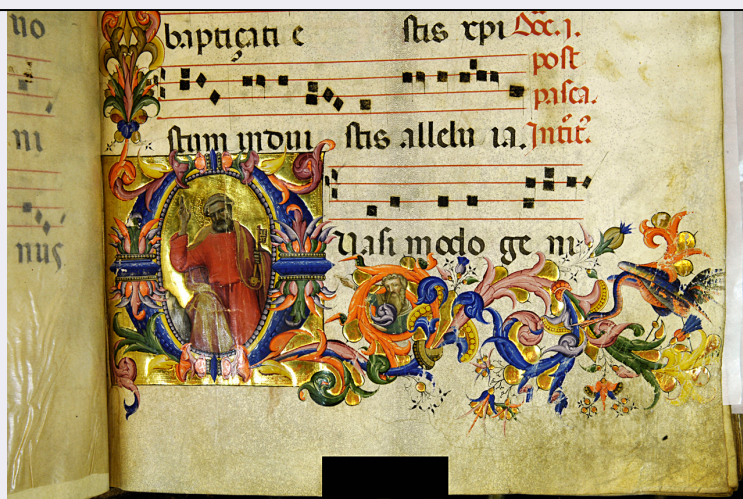 no
ni
nuʒ
baptiçati e stis xpi Doc. j.
post
pasca.
stum indui stis allelu ia. Intit.
Uasi modo ge ni